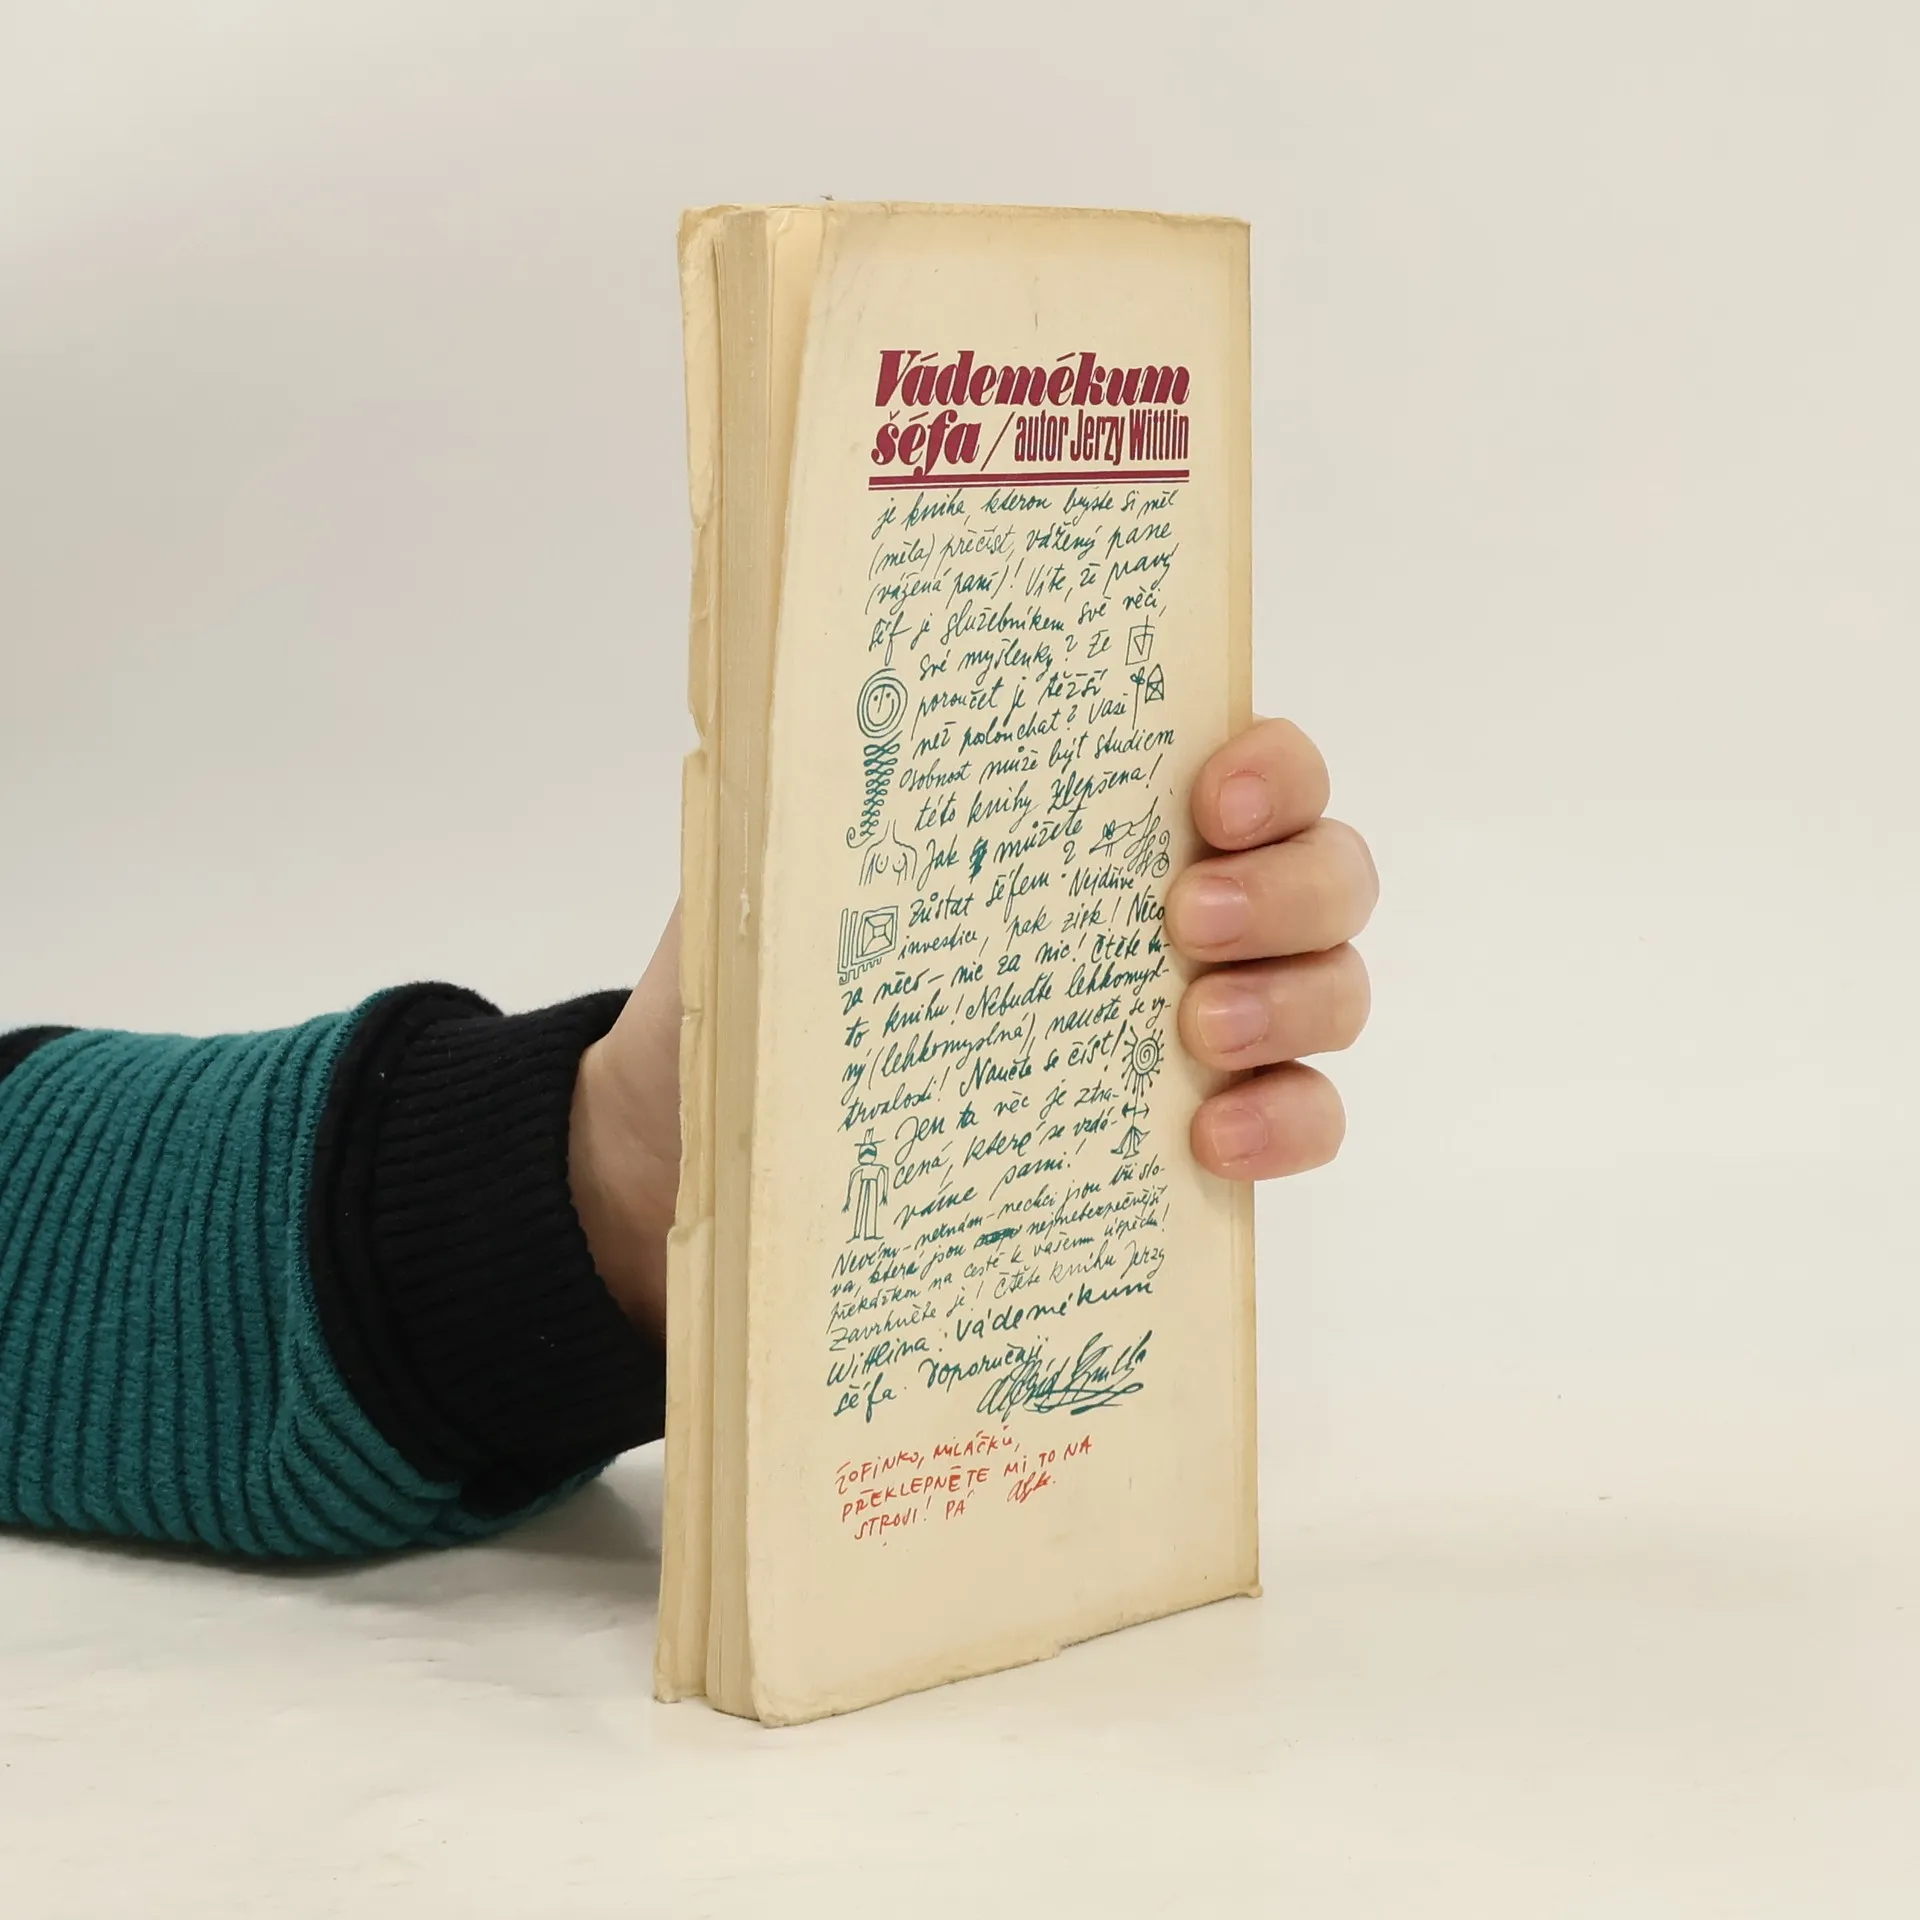 Vádemékum
šéfa / autor Jerzy Wittlin
je kniha, kterou byste si měl
(měla) přečíst, vážený pane
(vážená paní)! Víte, že pravý
šéf je služebníkem své věci,
své myšlenky? Že
poroučet je těžší
než poslouchat? Vaše
osobnost může být studiem
této knihy zlepšena!
Jak můžete
zůstat šéfem? Nejdříve
investice, pak zisk! Něco
za něco – nic za nic! Čtěte tu-
to knihu! Nebuďte lehkomysl-
ný (lehkomyslná), naučte se vy-
trvalosti! Naučte se číst!
Jen ta věc je ztra-
cená, které se vzdá-
váme sami!
Nevím – neznám – nechci jsou tři slo-
va, která jsou nejnebezpečnější
překážkou na cestě k vašemu úspěchu!
Zavrhněte je! Čtěte knihu Jerzy
Wittlina: Vádemékum
šéfa. Doporučuji
ŽOFINKO, MILÁČKU,
PŘEKLEPNĚTE MI TO NA
STROJI! PÁ